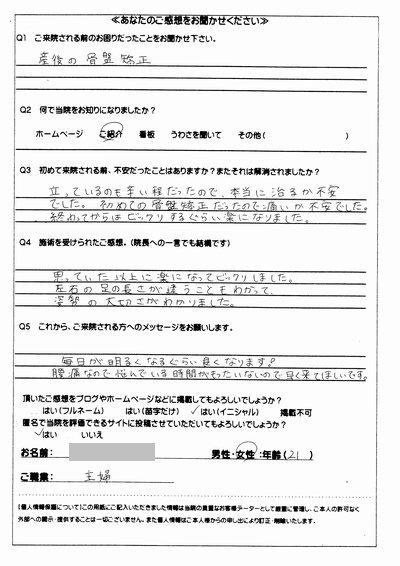 ≪あなたのご感想をお聞かせください≫
Q1 ご来院される前のお困りだったことをお聞かせ下さい。
産後の骨盤矯正
Q2 何で当院をお知りになりましたか?
ホームページ ご紹介 看板 うわさを聞いて その他( )
Q3 初めて来院される前、不安だったことはありますか?またそれは解消されましたか?
立っているのも辛い程だったので、本当に治るか不安
でした。初めての骨盤矯正だったので痛いか不安でした。
終わってからはビックリするぐらい楽になりました。
Q4 施術を受けられたご感想。(院長への一言でも結構です)
思っていた以上に楽になってビックリしました。
左右の足の長さが違うこともわかって、
姿勢の大切さがわかりました。
Q5 これから、ご来院される方へのメッセージをお願いします。
毎日が明るくなるぐらい良くなります?
腰痛なので悩んでいる時間がもったいないので早く来てほしいです。
頂いたご感想をブログやホームページなどに掲載してもよろしいでしょうか?
はい(フルネーム) はい(苗字だけ) ✓はい(イニシャル) 掲載不可
匿名で当院を評価できるサイトに投稿させていただいてもよろしいでしょうか?
✓はい いいえ
お名前: 男性・女性:年齢(21)
ご職業: 主婦
【個人情報保護について】この用紙にご記入いただきました情報は当院の貴重なお客様データーとして厳重に管理し、ご本人の許可なく
外部への開示・提供することは一切ございません。また個人情報はご本人様からの申し出により訂正・削除いたします。